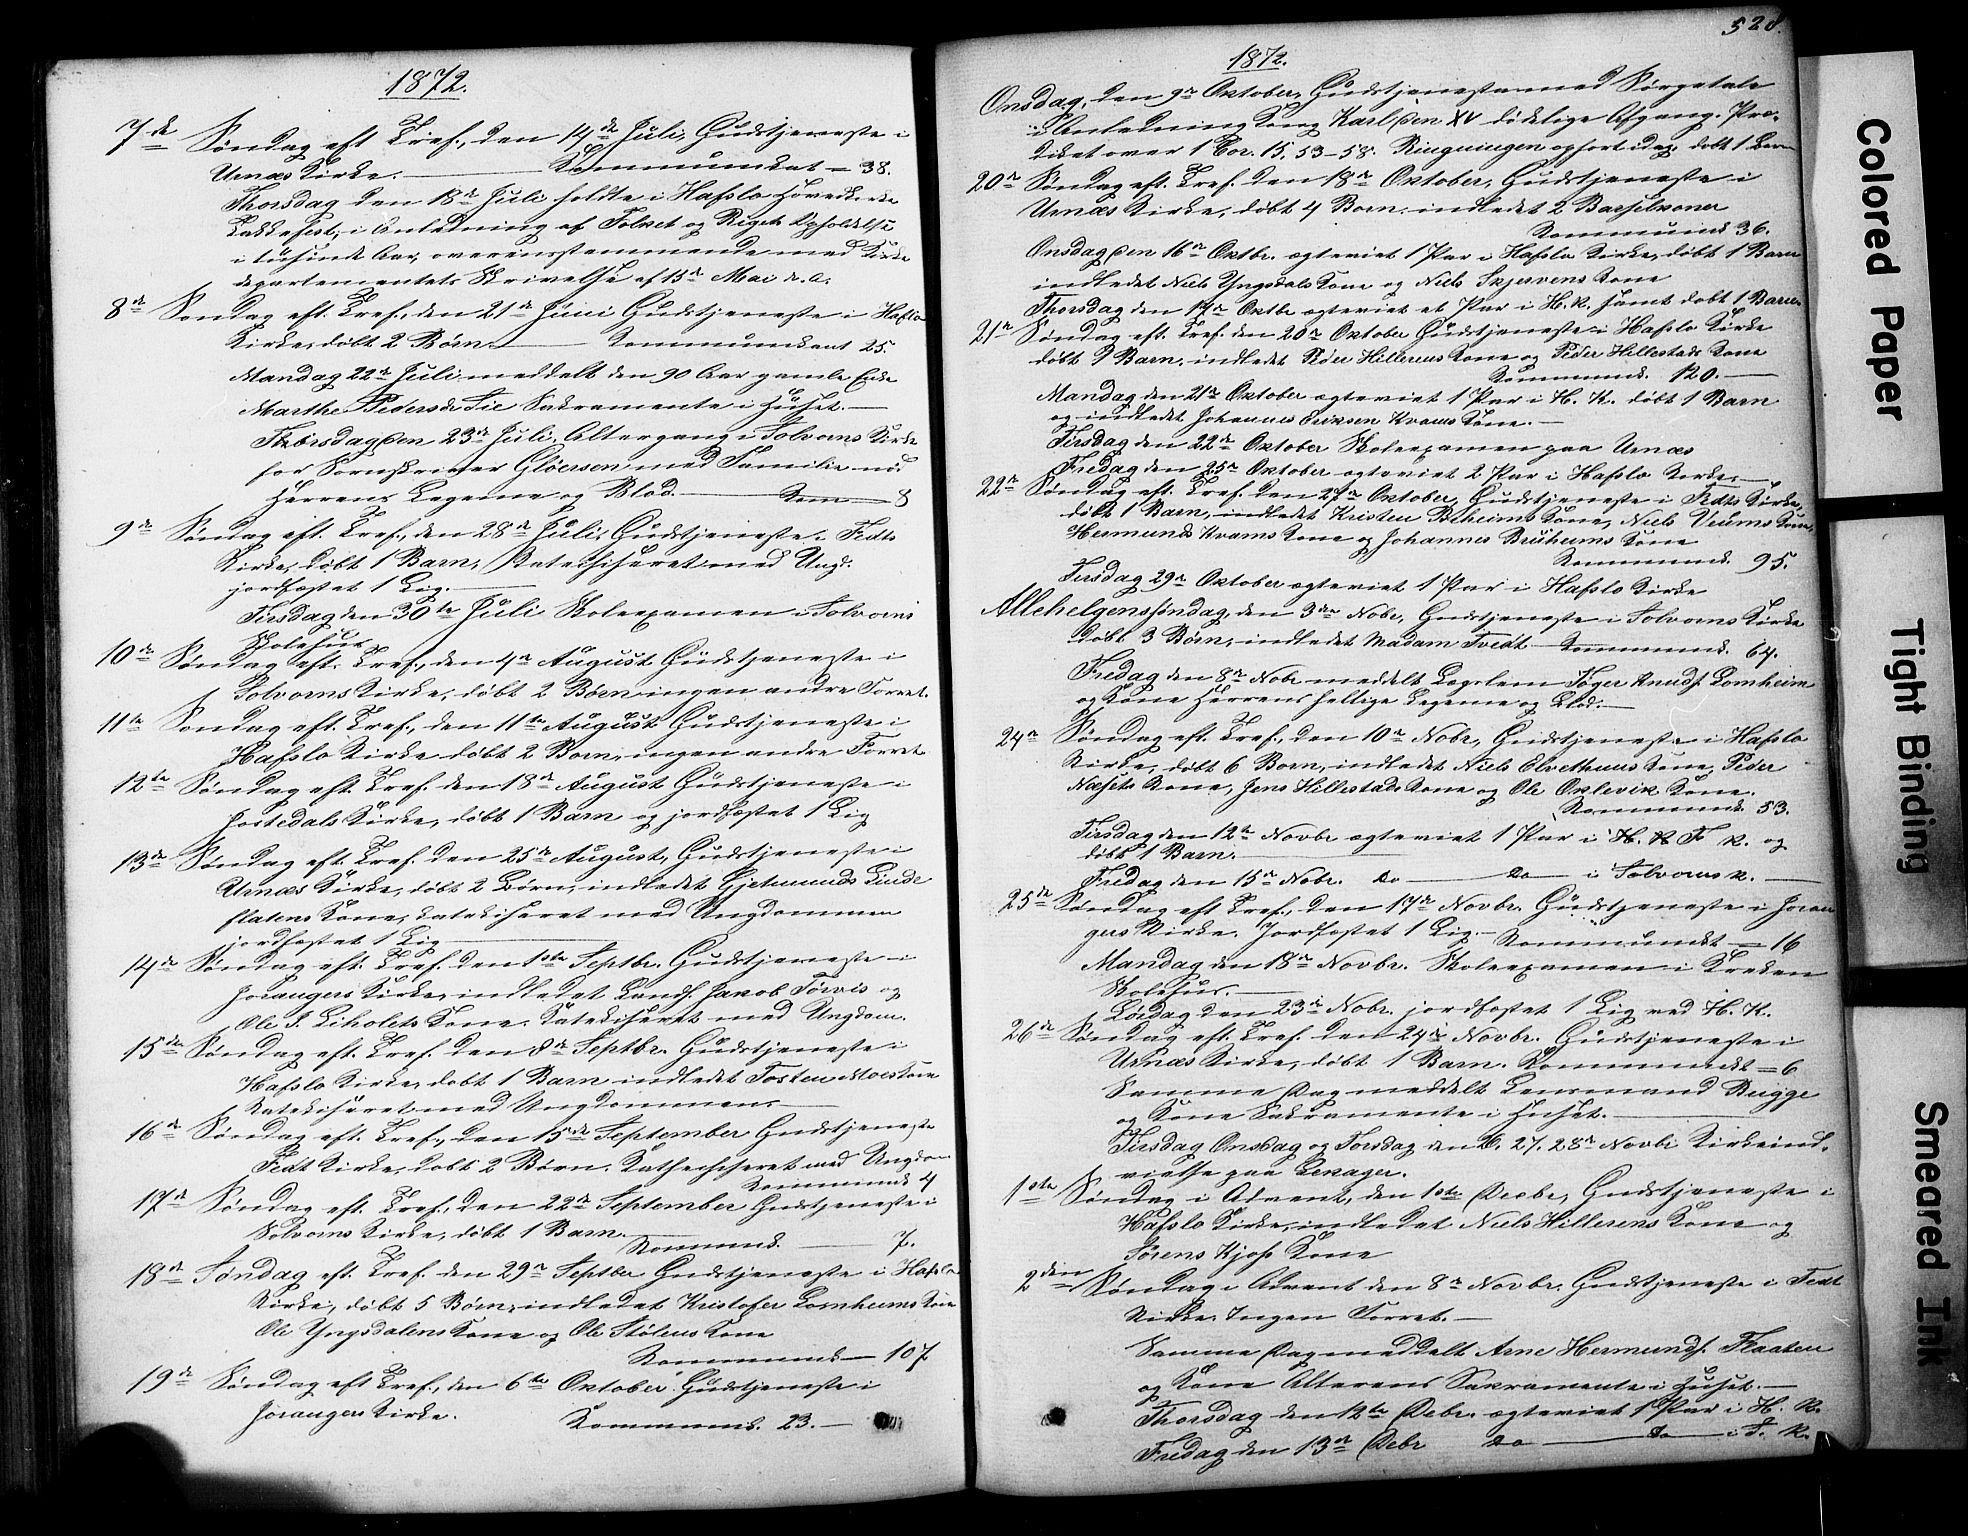 1872.
7de Søndag eft. Tref., den 14de Juli, Gudstjeneste i
Urnæs Kirke. Kommunikat = 38.
Thorsdag den 18de Juli holdtes i Hafslo Hovedkirke
Takkefest, i Anledning af Folkets og Rigets Opholdelse
i tusinde Aar, overensstemmende med Kirke
departementets Skrivelse af 15de Mai d. A.
8de Søndag eft. Tref., den 21de Juni Gudstjeneste i Hafslo
Kirke, døbt 2 Børn. Kommunikant 25.
Mandag 22de Juli meddelt den 90 Aar gamle Enke
Marthe Pedersdr Lie Sakramente i Huset.
Tirsdag den 23de Juli, Altergang i Solvorns Kirke
for Sorenskriver Gløersen med Familie
Herrens Legeme og Blod. Kom 8
9de Søndag eft. Tref., den 28de Juli, Gudstjeneste i Fedts
Kirke, døbt 1 Barn, Katechiseret med Ungd.
jordfæstet 1 Lig.
Tirsdag den 30te Juli Skoleexamen i Solvorns
Skolehus
10de Søndag eft. Tref., den 4de August Gudstjeneste i
Solvorns Kirke, døbt 2 Børn ingen andre Forret.
11te Søndag eft. Tref., den 11te August Gudstjeneste i
Hafslo Kirke døbt 2 Børn, ingen andre Forret
12te Søndag eft. Tref. den 18de August Gudstjeneste i
Jostedals Kirke, døbt 1 Barn og jordfæstet 1 Lig
13de Søndag eft. Tref. den 25de August, Gudstjeneste i
Urnæs Kirke, døbt 2 Børn, indledet Gjetmunds Linde
flatens Kone, katekiseret med Ungdommen
jordfæstet 1 Lig
14de Søndag eft. Tref. den 1ste Septbr. Gudstjeneste i
Joranger Kirke, indledet Landh. Jakob Torvis og
Ole S. Liholets Kone. Katekiseret med Ungdom.
15de Søndag eft. Tref. den 8de Septbr. Gudstjeneste i
Hafslo Kirke, døbt 1 Barn indledet Tosten Moes Kone
Katekiseret med Ungdommen.
16de Søndag eft. Tref., den 15de September Gudstjeneste
Fedt Kirke, døbt 2 Børn. Kathechiseret med Ungdom
Kommunik 4
17de Søndag eft. Tref., den 22de September Gudstjeneste i
Solvorns Kirke, døbt 1 Barn.
Kommunk. 7.
18de Søndag eft. Tref. den 29de Septbr Gudstjeneste i Hafslo
Kirke, døbt 5 Børn, indledet Kristofer Lomheims Kone
Ole Yngsdalens Kone og Ole Stølens Kone
Kommunik 107
19de Søndag eft. Tref., den 6te Oktober Gudstjeneste i
Joranger Kirke. Kommunik. 23.
528.
1872.
Onsdag, den 9de Oktober, Gudstjeneste med Sørgetale
i Anledning Kong Karl den XV dødelige Afgang. Præ-
diket over 1 Cor. 15, 53-58. Ringningen ophørt idag. døbt 1 Barn
20de Søndag eft. Tref. den 13de Oktober, Gudstjeneste i
Urnæs Kirke, døbt 4 Børn. indledet 2 Barselkoner
Kommunik 36.
Onsdag den 16de Oktbr. ægteviet 1 Par i Hafslo Kirke, døbt 1 Barn
indledet Niels Yngsdals Kone og Niels Skjervens Kone
Thorsdag den 17de Oktbr ægteviet et Par i H. K. samt døbt 1 Barn
21de Søndag eft. Tref. den 20de Oktober Gudstjeneste i Hafslo Kirke
døbt 9 Barn. indledet Peder Hillerens Kone og Peder Hillestads Kone
Kommunik. 120.
Mandag den 21de Oktober ægteviet 1 Par i H. K. døbt 1 Barn
og indledet Johannes Eriksen Kvams Kone.
Tirsdag den 22de Oktober Skoleexamen paa Urnæs
Fredag den 25de Oktober ægteviet 2 Par i Hafslo Kirke.
22de Søndag eft. Tref. den 27de Oktober Gudstjeneste i Fedts Kirke,
døbt 1 Barn, indledet Kristen Beheims Kone, Niels Veums Kone,
Hermund Kvams Kone og Johannes Bruheims Kone
Kommunik. 95.
Tirsdag 29de Oktober ægteviet 1 Par i Hafslo Kirke
Allehelgenssøndag, den 3die Nobr, Gudstjeneste i Solvorns Kirke
døbt 3 Børn, indledet Madam Tvedt Kommunik. 64.
Fredag den 8de Nobr meddelt Lægslem Tøger Knuds. Lomheim
og Kone Herrens hellige Legeme og Blod.
24de Søndag eft. Tref., den 10de Nobr, Gudstjeneste i Hafslo
Kirke, døbt 6 Børn, indledet Niels Elvethuns Kone, Peder
Næsets Kone, Jens Hillestads Kone og Ole Oklevik Kone.
Kommunik 53.
Tirsdag den 12te Novbr ægteviet 1 Par i F. K. og
døbt 1 Barn.
Fredag den 15de Nobr. do do i Solvorns K.
25de Søndag eft. Tref., den 17de Novbr. Gudstjeneste i Joran
gers Kirke. Jordfæstet 1 Lig. Kommunikt = 16
Mandag den 18de Novbr. Skoleexamen i Kreken
Skolehus.
Lørdag den 23de Nobr. jordfæstet 1 Lig ved H. K.
26de Søndag eft. Tref. den 24de Novbr. Gudstjeneste i
Urnæs Kirke, døbt 1 Barn. Kommunikt = 6
Samme Dag meddelt Lensmand Bugge
og Kone Sakramente i Huset.
Tirsdag Onsdag og Torsdag den 26, 27. 28de Novbr Kirkeind-
vielse paa Lekager.
1ste Søndag i Advent, den 1ste Decbr, Gudstjeneste i
Hafslo Kirke, indledet Niels Hillerens Kone og
Sørens Kjøs Kone
2den Søndag i Advent den 8de Novbr. Gudstjeneste i Fedt
Kirke. Ingen Forret.
Samme Dag meddelt Arne Hermunds. Flaaten
og Kone Alterens Sakramente i Huset.
Thorsdag den 12te Debr. ægteviet 1 Par i H. K.
Fredag den 13de Debr do do i F. K.
Colored Paper
Tight Binding
Smeared Ink